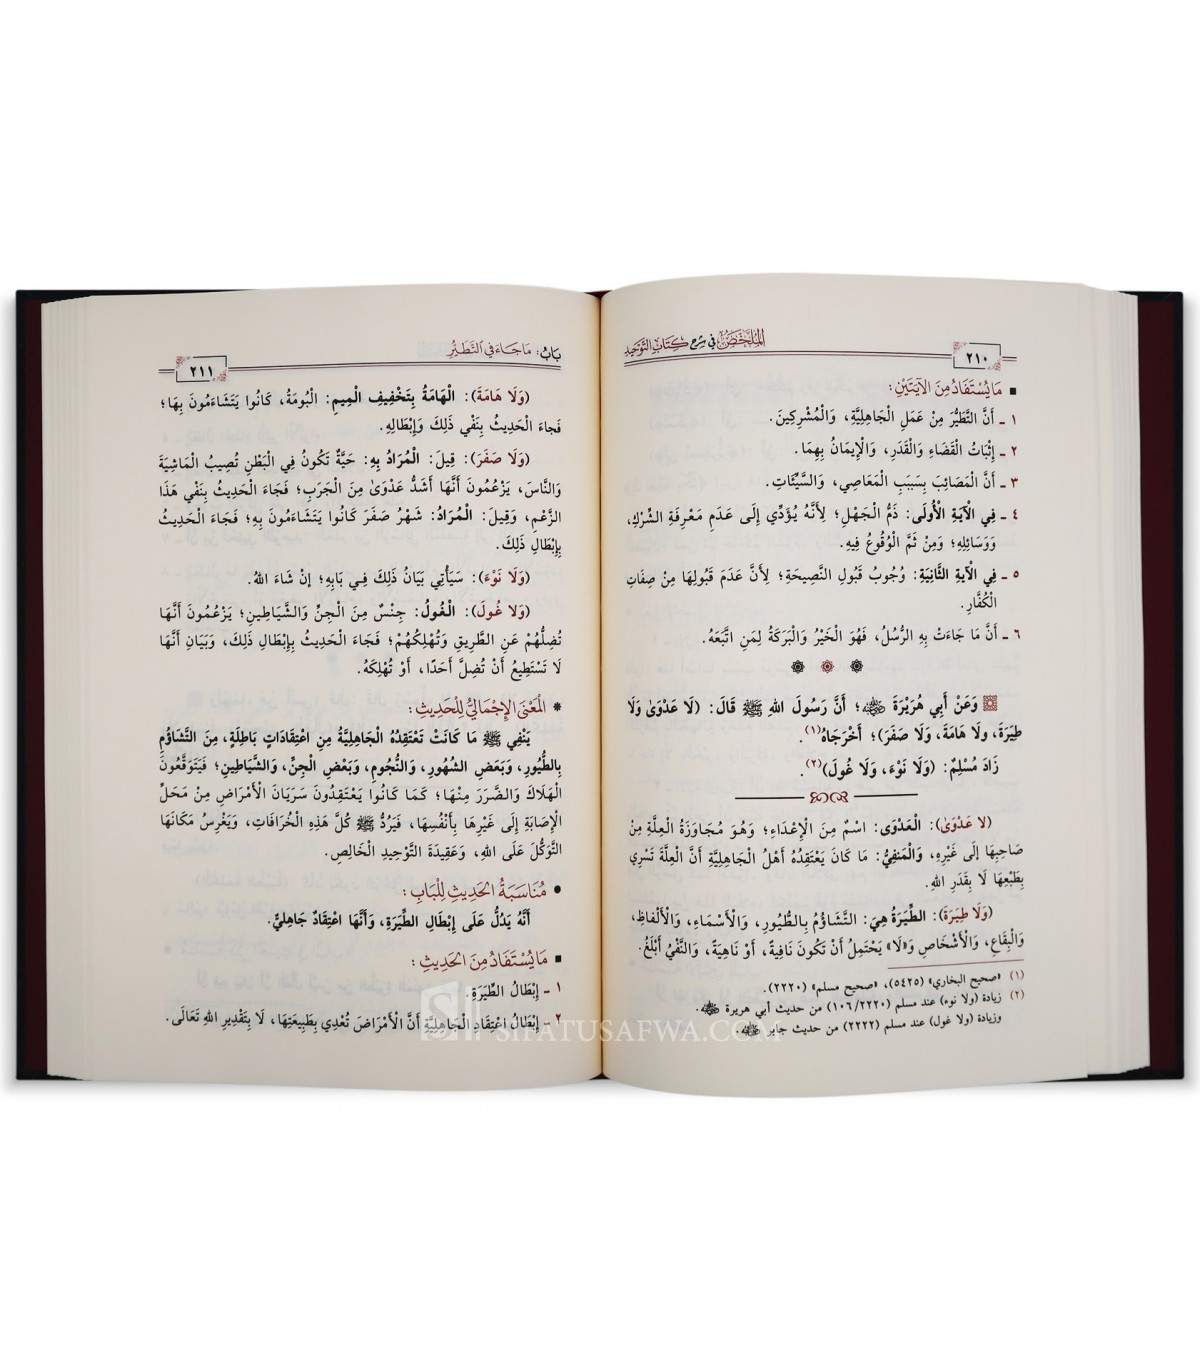 الملخص في شرح كتاب التوحيد
٢١٠
■ ما يستفاد من الآيتين:
١ ـ أَنَّ التَّطَيُّرَ مِنْ عَمَلِ الْجَاهِلِيَّةِ، وَالْمُشْرِكِينَ.
٢ ـ إِثْبَاتُ الْقَضَاءِ وَالْقَدَرِ، وَالْإِيمَانُ بِهِمَا.
٣ ـ أَنَّ الْمَصَائِبَ بِسَبَبِ الْمَعَاصِي، وَالسَّيِّئَاتِ.
٤ ـ فِي الْآيَةِ الْأُولَى: ذَمُّ الْجَهْلِ؛ لِأَنَّهُ يُؤَدِّي إِلَى عَدَمِ مَعْرِفَةِ الشِّرْكِ،
وَوَسَائِلِهِ؛ وَمِنْ ثَمَّ الْوُقُوعُ فِيهِ.
٥ ـ فِي الْآيَةِ الثَّانِيَةِ: وُجُوبُ قَبُولِ النَّصِيحَةِ؛ لِأَنَّ عَدَمَ قَبُولِهَا مِنْ صِفَاتِ
الْكُفَّارِ.
٦ ـ أَنَّ مَا جَاءَتْ بِهِ الرُّسُلُ، فَهُوَ الْخَيْرُ وَالْبَرَكَةُ لِمَنِ اتَّبَعَهُ.
وَعَنْ أَبِي هُرَيْرَةَ ﵁؛ أَنَّ رَسُولَ اللهِ ﷺ قَالَ: (لَا عَدْوَىٰ وَلَا
طِيَرَةَ، وَلَا هَامَةَ، وَلَا صَفَرَ)؛ أَخْرَجَاهُ(١).
زَادَ مُسْلِمٌ: (وَلَا نَوْءَ، وَلَا غُولَ)(٢).
(لا عَدْوَىٰ): الْعَدْوَى: اسْمٌ مِنَ الْإِعْدَاءِ؛ وَهُوَ مُجَاوَزَةُ الْعِلَّةِ مِنْ
صَاحِبِهَا إِلَى غَيْرِهِ، وَالْمَنفِيُّ: مَا كَانَ يَعْتَقِدُهُ أَهْلُ الْجَاهِلِيَّةِ أَنَّ الْعِلَّةَ تَسْرِي
بِطَبْعِهَا لَا بِقَدَرِ اللهِ.
(وَلَا طِيَرَةَ): الطِّيَرَةُ هِيَ: التَّشَاؤُمُ بِالطُّيُورِ، وَالْأَسْمَاءِ، وَالْأَلْفَاظِ،
وَالْبِقَاعِ، وَالْأَشْخَاصِ وَ«لَا» يَحْتَمِلُ أَنْ تَكُونَ نَافِيَةً، أَوْ نَاهِيَةً، وَالنَّفْيُ أَبْلَغُ.
(١) «صحيح البخاري» (٥٤٢٥)، «صحيح مسلم» (٢٢٢٠).
(٢) زيادة (ولا نوء) عند مسلم (١٠٦/٢٢٢٠) من حديث أبي هريرة ﵁.
وزيادة (ولا غول) عند مسلم (٢٢٢٢) من حديث جابر ﵁.
باب: ما جاء في التطير
٢١١
(وَلَا هَامَةَ): الْهَامَةُ بِتَخْفِيفِ الْمِيمِ: الْبُومَةُ، كَانُوا يَتَشَاءَمُونَ بِهَا؛
فَجاءَ الْحَدِيثُ بِنَفْي ذَلِكَ وَإِبْطَالِهِ.
(وَلَا صَفَرَ): قِيلَ: الْمُرَادُ بِهِ: حَيَّةٌ تَكُونُ فِي الْبَطْنِ تُصِيبُ الْمَاشِيَةَ
وَالنَّاسَ، يَزْعُمُونَ أَنَّهَا أَشَدُّ عَدْوَىٰ مِنَ الْجَرَبِ؛ فَجَاءَ الْحَدِيثُ بِنَفْي هَذَا
الزَّعْمِ، وَقِيلَ: الْمُرَادُ: شَهْرُ صَفَرَ كَانُوا يَتَشَاءَمُونَ بِهِ؛ فَجَاءَ الْحَدِيثُ
بِإِبْطَالِ ذَلِكَ.
(وَلَا نَوْءَ): سَيَأْتِي بَيَانُ ذَلِكَ فِي بَابِهِ؛ إِنْ شَاءَ اللهُ.
(وَلَا غُولَ): الْغُولُ: جِنْسٌ مِنَ الْجِنِّ وَالشَّيَاطِينِ؛ يَزْعُمُونَ أَنَّهَا
تُضِلُّهُمْ عَنِ الطَّرِيقِ وَتُهْلِكُهُمْ؛ فَجَاءَ الْحَدِيثُ بِإِبْطَالِ ذَلِكَ، وَبَيَانِ أَنَّهَا
لَا تَسْتَطِيعُ أَنْ تُضِلَّ أَحَدًا، أَوْ تُهْلِكَهُ.
* المعنى الإجمالي للحديث:
يَنْفِي ﷺ مَا كَانَتْ تَعْتَقِدُهُ الْجَاهِلِيَّةُ مِنِ اعْتِقَادَاتٍ بَاطِلَةٍ، مِنَ التَّشَاؤُمِ
بِالطُّيُورِ، وَبَعَضِ الشُّهُورِ، وَالنُّجُومِ، وَبَعْضِ الْجِنِّ، وَالشَّيَاطِينِ؛ فَيَتَوَقَّعُونَ
الْهَلَاكَ وَالضَّرَرَ مِنْهَا؛ كَمَا كَانُوا يَعْتَقِدُونَ سَرَيَانَ الْأَمْرَاضِ مِنْ مَحَلِّ
الْإِصَابَةِ إِلَى غَيْرِهَا بِأَنْفُسِهَا، فَيَرُدُّ ﷺ كُلَّ هَذِهِ الْخُرَافَاتِ، وَيَغْرِسُ مَكَانَهَا
التَّوَكُّلَ عَلَى اللهِ، وَعَقِيدَةَ التَّوْحِيدِ الْخَالِصِ.
● مناسبة الحديث للباب:
أَنَّهُ يَدُلُّ عَلَى إِبْطَالِ الطِّيَرَةِ، وَأَنَّهَا اعْتِقَادٌ جَاهِلِيٌّ.
■ ما يستفاد من الحديث:
١ ـ إِبْطَالُ الطِّيَرَةِ.
٢ ـ إِبْطَالُ اعْتِقَادِ الْجَاهِلِيَّةِ أَنَّ الْأَمْرَاضَ تُعْدِي بِطَبِيعَتِهَا، لَا بِتَقْدِيرِ اللهِ تَعَالَى.
SIFATUSAFWA.COM